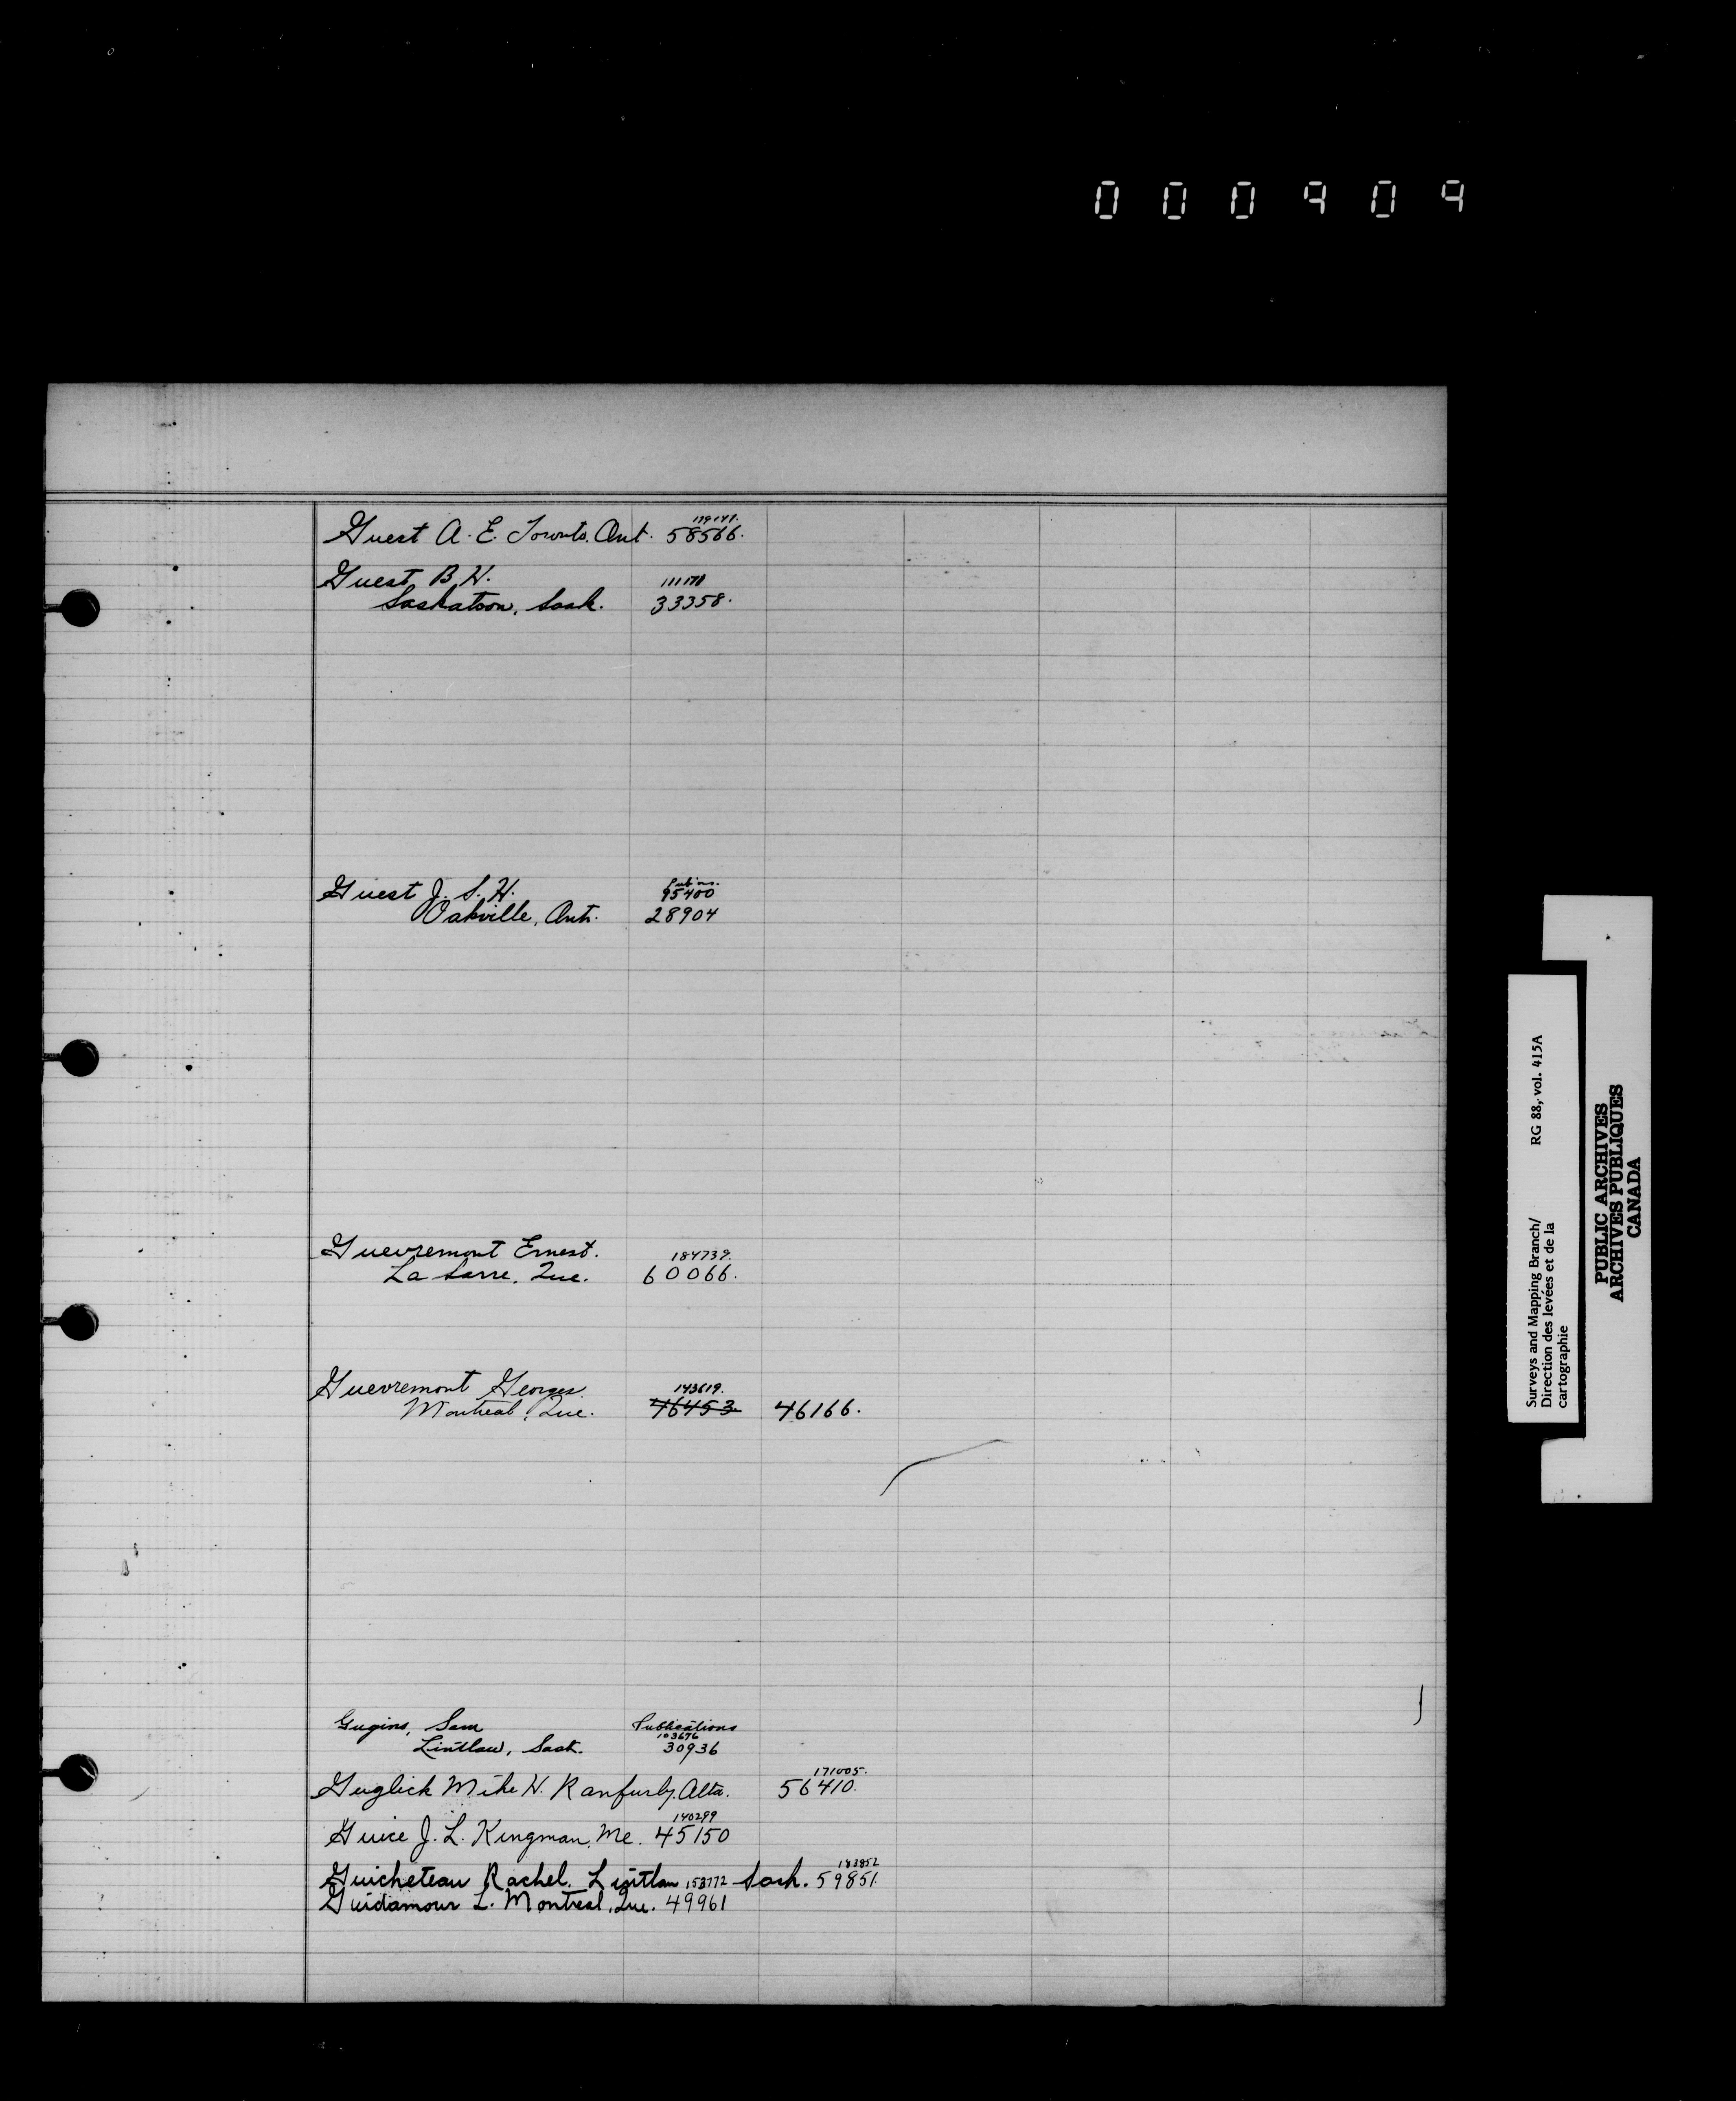 000909
179147.
Guest A. E. Toronto. Ont. 58566.
Guest B. H. 111178
Saskatoon, Sask. 33358.
Guest J. S. H. Pub'ns.
95400
Oakville, Ont. 28904
Guevremont Ernest. 184739.
La Sarre, Que. 60066.
Guevremont Georges. 143619.
Montreal, Que. 46453 46166.
Gugins, Sam Publications
103676
Lintlaw, Sask. 30936
171005.
Guglich Mike H. Ranfurly. Alta. 56410.
140299
Guice J. L. Kingman, Me. 45150
183852
Guicheteau Rachel. Lintlaw Sask. 59851.
153772
Guidamour L. Montreal, Que. 49961
Surveys and Mapping Branch/ RG 88, vol. 415A
Direction des levées et de la
cartographie
PUBLIC ARCHIVES
ARCHIVES PUBLIQUES
CANADA